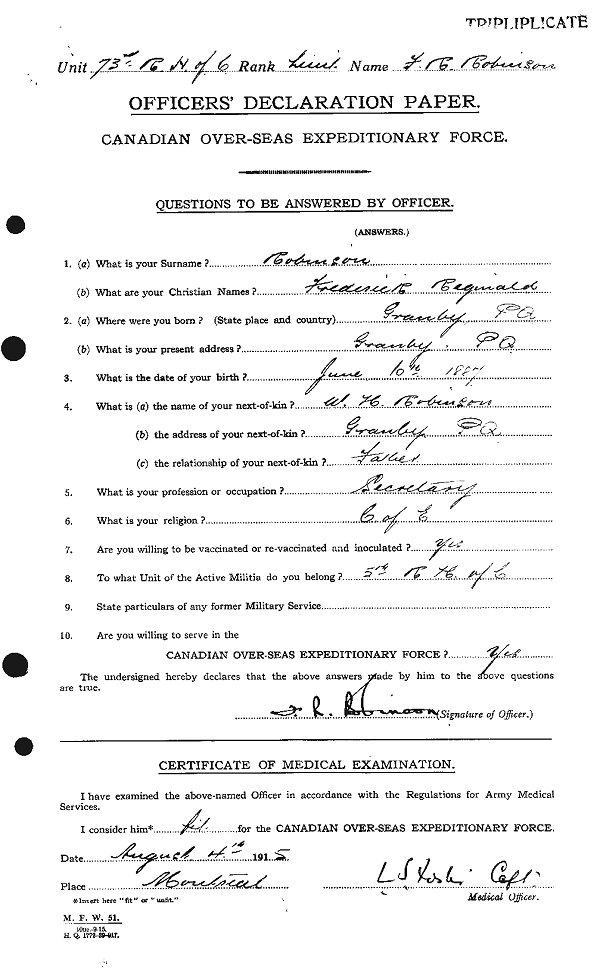 TRIPLIPLICATE
Unit 73rd R H of C Rank Lieut Name F. R. Robinson
OFFICERS' DECLARATION PAPER.
CANADIAN OVER-SEAS EXPEDITIONARY FORCE.
QUESTIONS TO BE ANSWERED BY OFFICER.
(ANSWERS.)
1. (a) What is your Surname? Robinson
(b) What are your Christian Names? Frederick Reginald
2. (a) Where were you born? (State place and country) Granby PQ
(b) What is your present address? Granby. PQ
3. What is the date of your birth? June 10th 1887
4. What is (a) the name of your next-of-kin? W. H. Robinson
(b) the address of your next-of-kin? Granby PQ
(c) the relationship of your next-of-kin? Father
5. What is your profession or occupation? Secretary
6. What is your religion? C of E
7. Are you willing to be vaccinated or re-vaccinated and inoculated? Yes
8. To what Unit of the Active Militia do you belong? 5th R H. of C
9. State particulars of any former Military Service
10. Are you willing to serve in the
CANADIAN OVER-SEAS EXPEDITIONARY FORCE? Yes
The undersigned hereby declares that the above answers made by him to the above questions
are true.
F. R. Robinson (Signature of Officer.)
CERTIFICATE OF MEDICAL EXAMINATION.
I have examined the above-named Officer in accordance with the Regulations for Army Medical
Services.
I consider him* fit for the CANADIAN OVER-SEAS EXPEDITIONARY FORCE.
Date August 4th 1915
Place Montreal
Capt
*Insert here "fit" or "unfit."
Medical Officer.
M. F. W. 51.
H. Q. 1772-39-917.